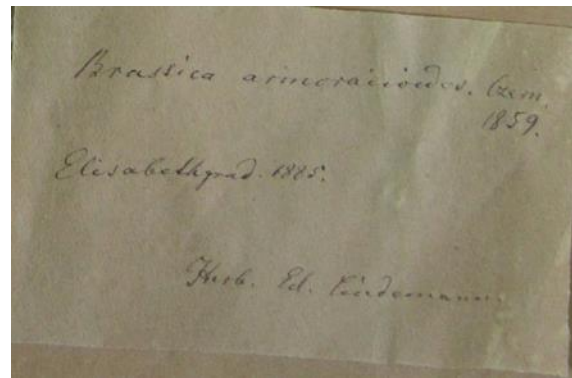 Brassica armoracioides. Czern.
1859.
Elisabethgrad. 1885.
Herb. Ed. Lindemann.